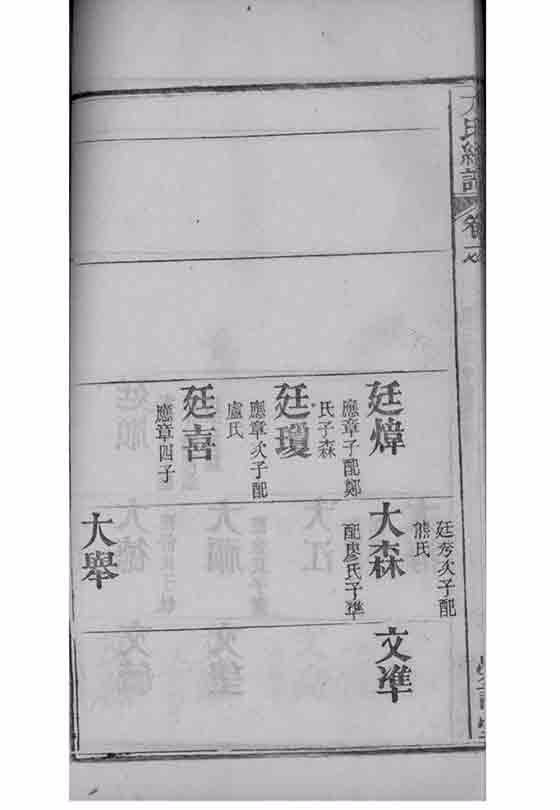 氏總譜
卷一
廷煒
應章子配鄭
氏子森
廷瓊
應章次子配
盧氏
廷喜
應章四子
廷芳次子配
熊氏
大森
配廖氏子準
大舉
文準